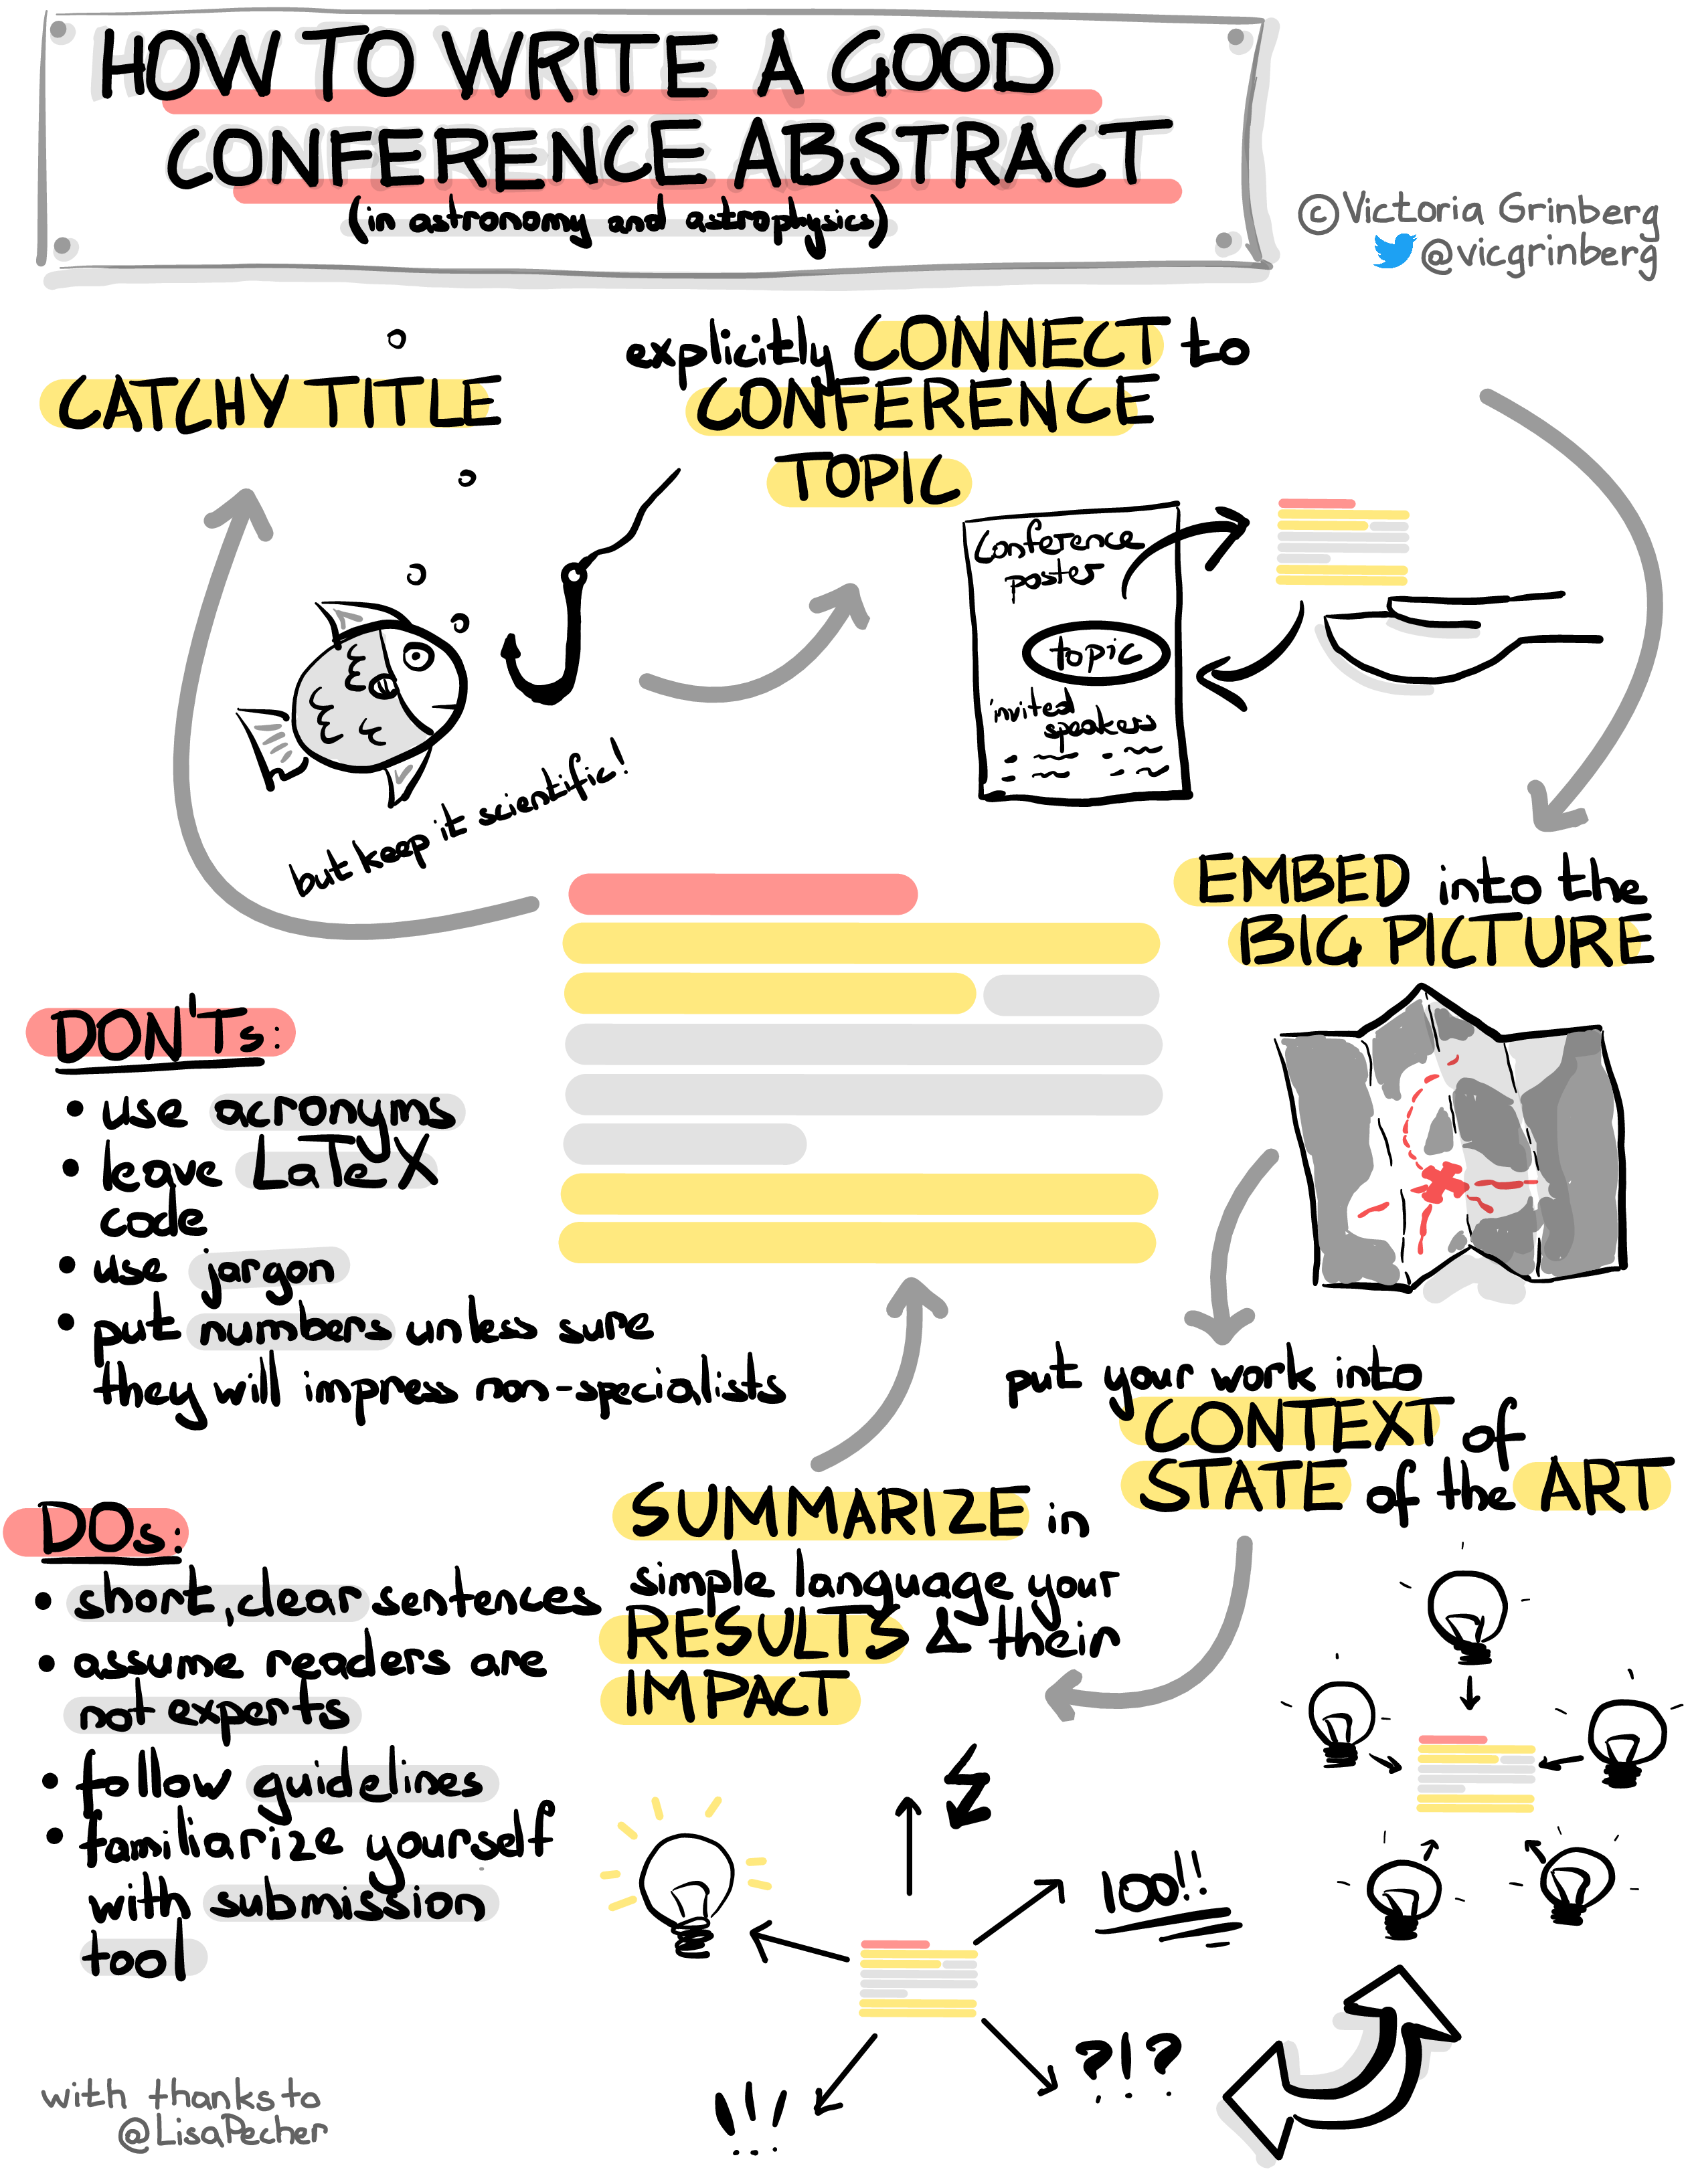 HOW TO WRITE A GOOD
CONFERENCE ABSTRACT
(in astronomy and astrophysics)
©Victoria Grinberg
@vicgrinberg
CATCHY TITLE
but keep it scientific!
explicitly CONNECT to
CONFERENCE
TOPIC
Conference
poster
topic
invited
speakers
EMBED into the
BIG PICTURE
put your work into
CONTEXT of
STATE of the ART
SUMMARIZE in
simple language your
RESULTS & their
IMPACT
100!!
?!?
!!!
DON'Ts:
• use acronyms
• leave LaTeX
code
• use jargon
• put numbers unless sure
they will impress non-specialists
DOs:
• short, clear sentences
• assume readers are
not experts
• follow guidelines
• familiarize yourself
with submission
tool
with thanks to
@LisaPecher